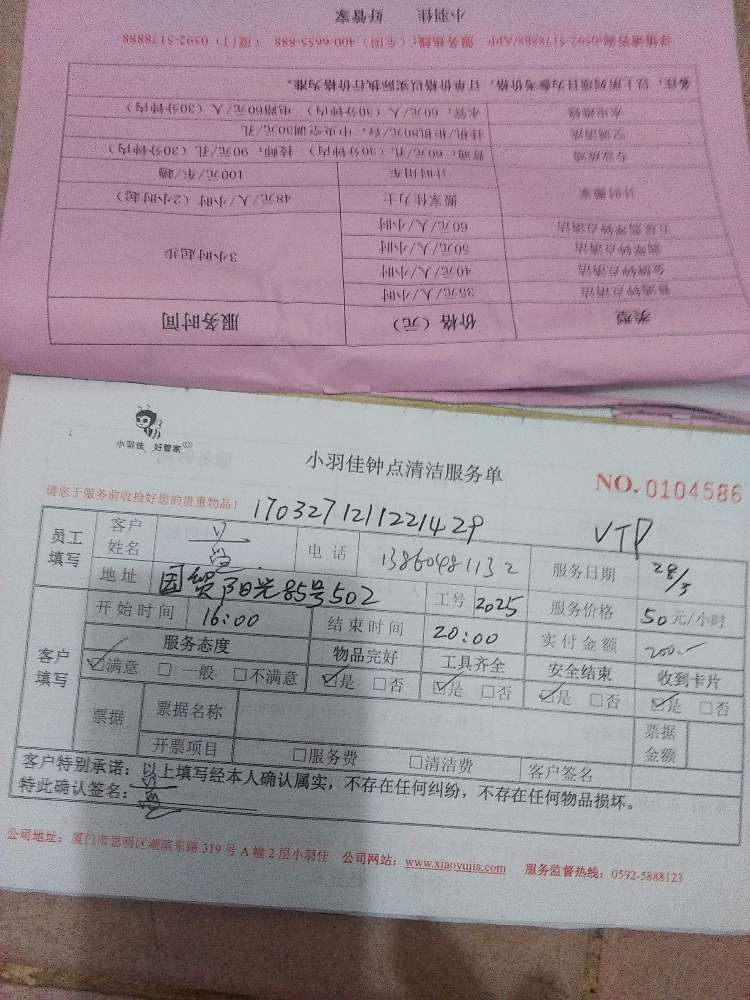 小羽佳 好管家
详情请咨询:0592-5178888/APP 服务热线:(全国)400-6655-888 (厦门)0592-5178888
类型 价格(元) 服务时间
普通钟点清洁 35元/人/小时 3小时起步
金牌钟点清洁 40元/人/小时
翡翠钟点清洁 50元/人/小时
五星翡翠钟点清洁 60元/人/小时
计时搬家 搬家佳力士 48元/人/小时(2小时起)
计时用车 100元/车/趟
专业疏通 普通:60元/孔(30分钟内) 技师:90元/孔(30分钟内)
空调清洗 挂机柜机80元/台,中央空调30元/孔
水电维修 水管:60元/人(30分钟内) 电路60元/人(30分钟内)
备注:以上所列项目为参考价格,订单价格以实际执行价格为准。
小羽佳 好管家
小羽佳钟点清洁服务单
NO.0104586
请您于服务前收拾好您的贵重物品!
1703271211221429
VTP
员工填写 客户姓名 电话 13860481132 服务日期 28/3
地址 国贸阳光85号502 工号 2025 服务价格 50元/小时
客户填写 开始时间 16:00 结束时间 20:00 实付金额 200.-
服务态度 物品完好 工具齐全 安全结束 收到卡片
☑满意 □一般 □不满意 ☑是 □否 ☑是 □否 ☑是 □否 ☑是 □否
票据 票据名称 票据金额
开票项目 □服务费 □清洁费 客户签名
客户特别承诺:以上填写经本人确认属实,不存在任何纠纷,不存在任何物品损坏。
特此确认签名:
公司地址:厦门市思明区湖滨东路319号A幢2层小羽佳 公司网站:www.xiaoyujia.com 服务监督热线:0592-5888123